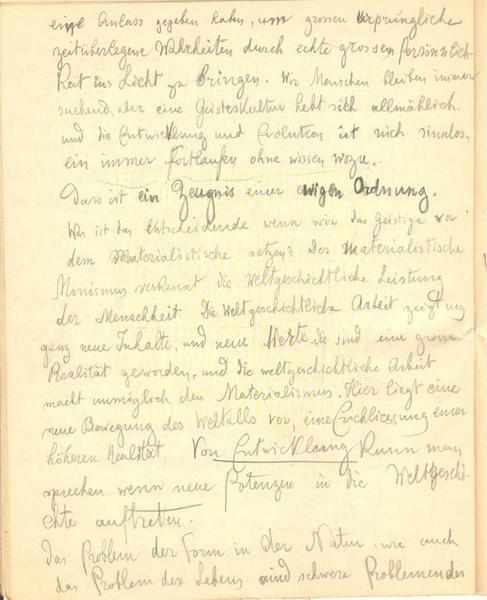 eine Anlass gegeben haben, um grossen Ursprüngliche
zeitüberlegene Wahrheiten durch echte grossen Persönlich-
keit ins Licht zu bringen. Wir Menschen bleiben immer
suchend, aber eine Geisteskultur hebt sich allmählich
und die Entwicklung und Evolution ist nich sinnlos,
ein immer fortlaufen ohne wissen wozu.
Dass ist ein Zeugnis einer ewigen Ordnung.
Was ist das Entscheidende wenn wir das Geistige vor
dem Materialistische setzen? Der Materialistische
Monismus verkennt die Weltgeschichtliche Leistung
der Menschheit. Die Weltgeschichtliche Arbeit zeigt uns
ganz neue Inhalte, und neue Werte, die sind eine grosse
Realität geworden, und die weltgeschichtliche Arbeit
macht unmöglich den Materialismus. Hier liegt eine
neue Bewegung des Weltalls vor, eine Erschliessung einer
höheren Realität. Von Entwicklaung kann man
sprechen wenn neue Potenzen in die Weltgeschi-
chte auftreten.
Das Problem der Form in der Natur, wie auch
das Problem des Lebens sind schwere Probleme des